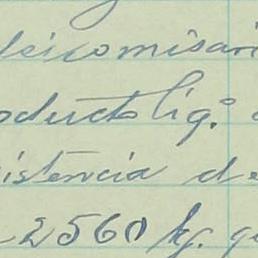 deicomisari
oducto liq.º
istencia de
2560 kg. q